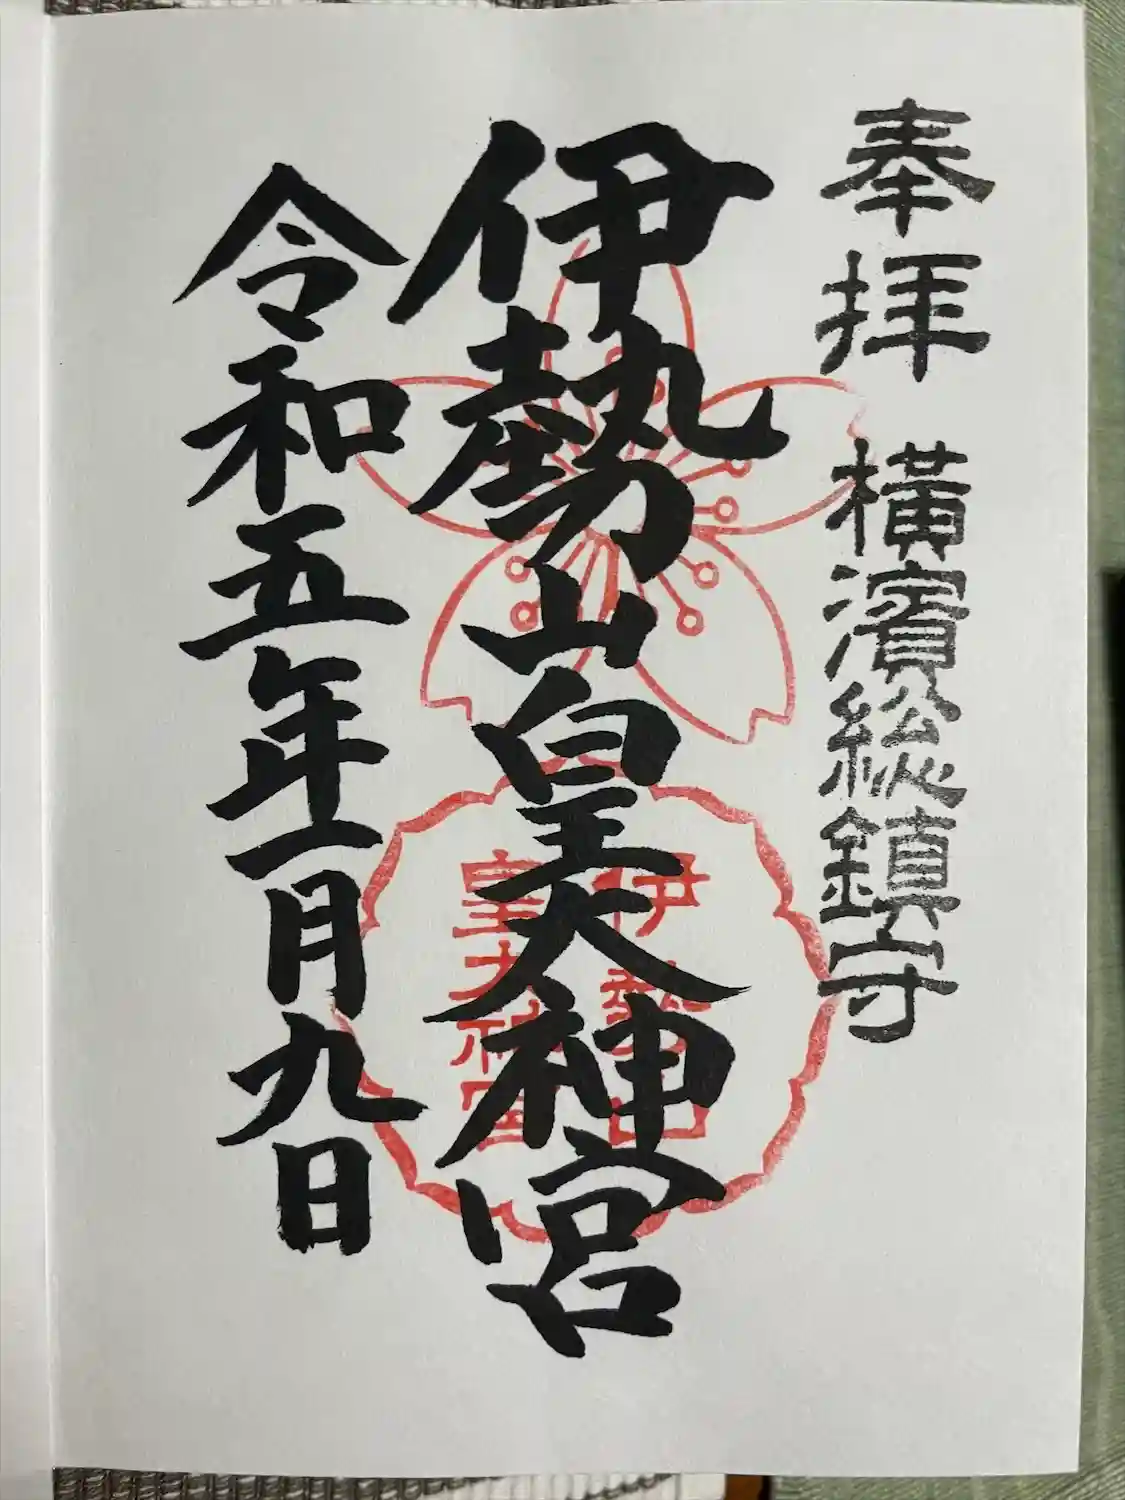 奉拝
横濱総鎮守
伊勢山皇大神宮
令和五年一月九日
伊勢山
皇大神宮